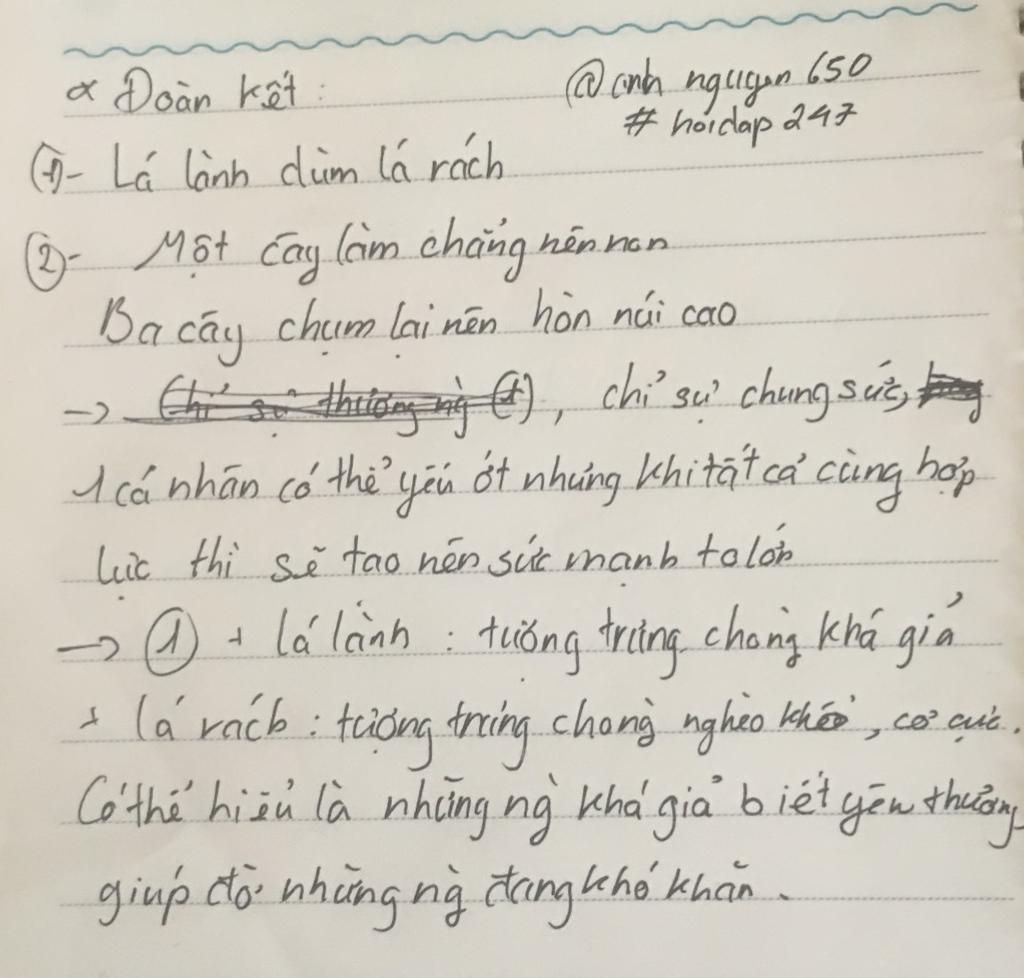 * Đoàn kết : @anh nguyen 650
# hoidap 247
①- Lá lành đùm lá rách
②- Một cây làm chẳng nên non
Ba cây chụm lại nên hòn núi cao
→ (Chỉ sự thương ng ①), chỉ sự chung sức,
1 cá nhân có thể yếu ớt nhưng khi tất cả cùng hợp
lực thì sẽ tạo nên sức mạnh to lớn
→ ① + lá lành : tượng trưng cho ng khá giả
+ lá rách : tượng trưng cho ng nghèo khó, cơ cực.
Có thể hiểu là những ng khá giả biết yêu thương
giúp đỡ những ng đang khó khăn.